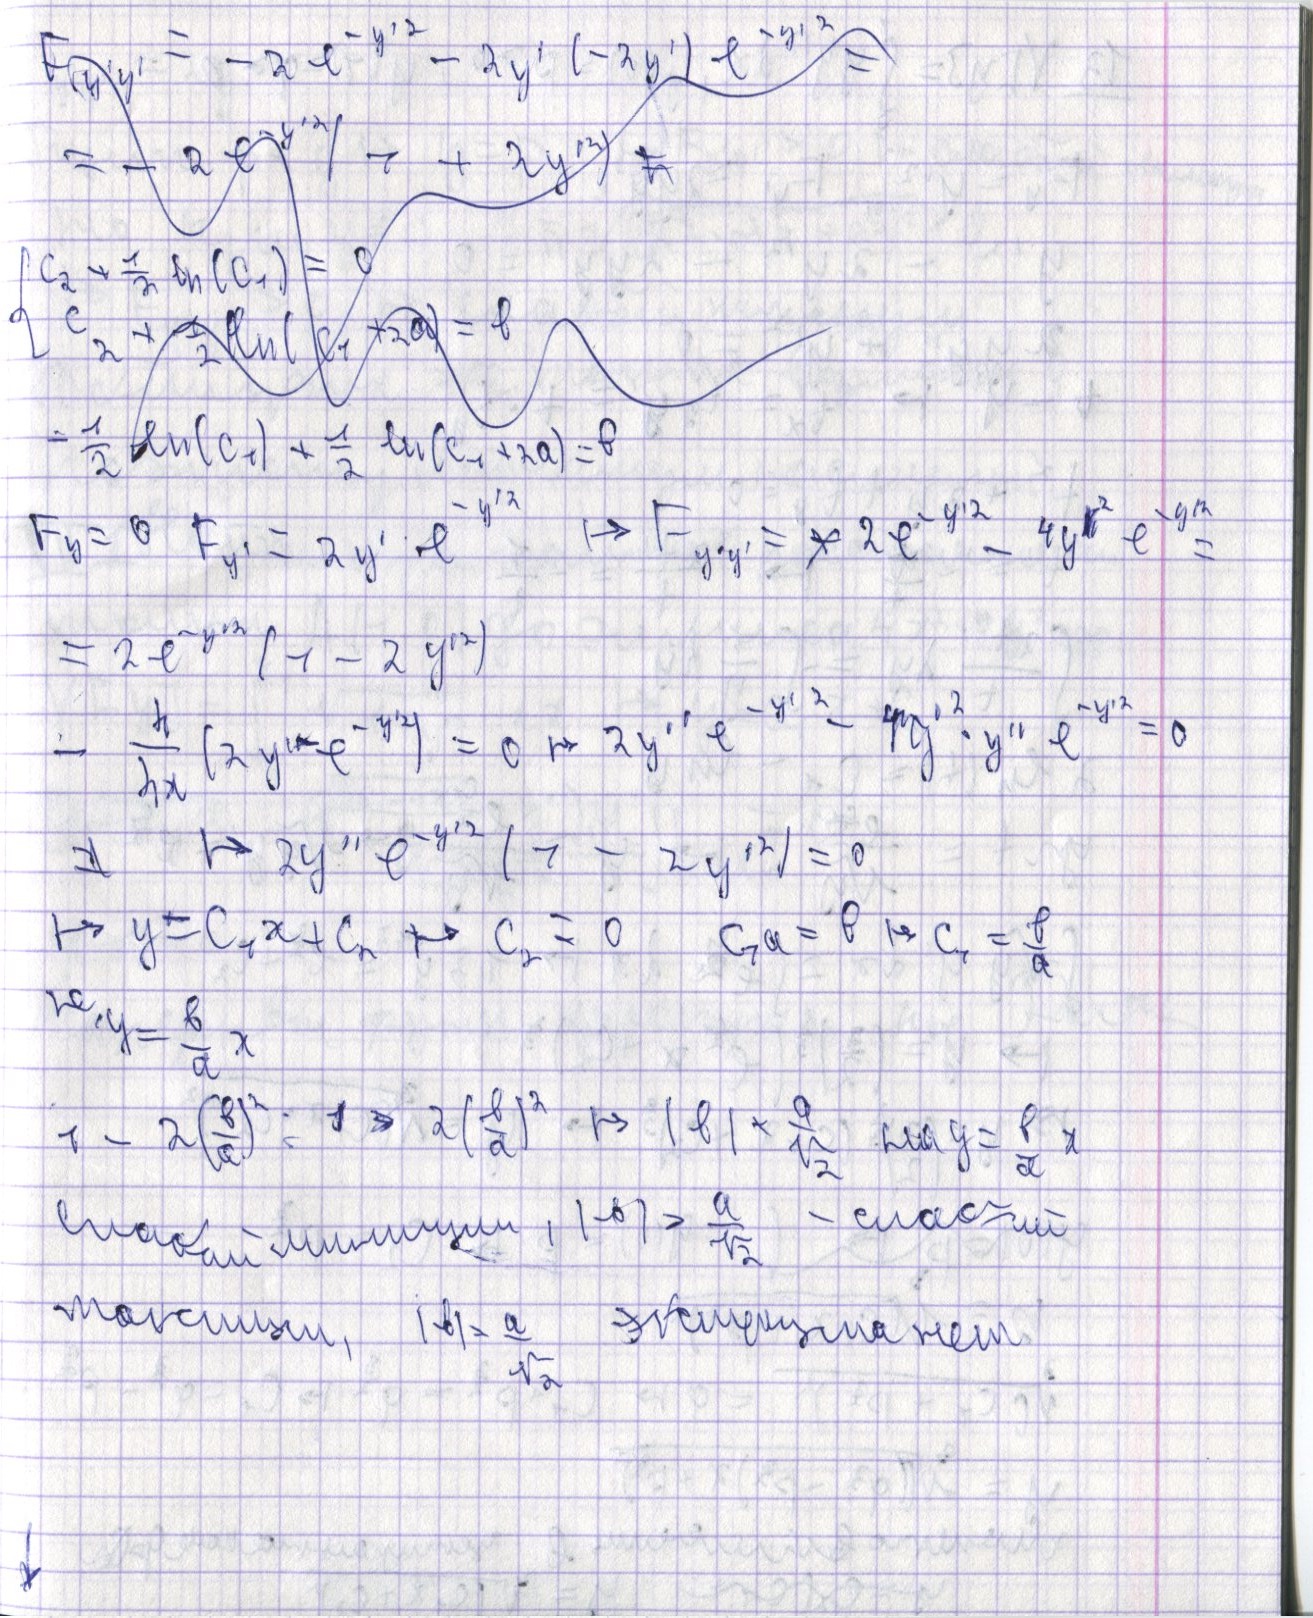 F_{y'y'} = - 2 e^{-y'^2} - 2y' (-2y') e^{-y'^2} =
= - 2 e^{-y'^2} ( 1 + 2y'^2)
{ C_2 + \frac{1}{2} ln(C_1) = 0
C_2 + \frac{1}{2} ln(C_1 + 2a) = b
- \frac{1}{2} ln(C_1) + \frac{1}{2} ln(C_1 + 2a) = b
F_y = 0 F_{y'} = 2y' \cdot e^{-y'^2} ↦ F_{y'y'} = 2e^{-y'^2} - 4y'^2 e^{-y'^2} =
= 2 e^{-y'^2} (1 - 2y'^2)
- \frac{d}{dx} (2y' e^{-y'^2}) = 0 ↦ 2y'' e^{-y'^2} - 4y'^2 \cdot y'' e^{-y'^2} = 0
↦ 2y'' e^{-y'^2} (1 - 2y'^2) = 0
↦ y = C_1 x + C_2 ↦ C_2 = 0 C_1 a = b ↦ C_1 = \frac{b}{a}
y = \frac{b}{a} x
1 - 2(\frac{b}{a})^2 = 1 > 2(\frac{b}{a})^2 ↦ |b| < \frac{a}{\sqrt{2}} на y = \frac{b}{a} x
слабый минимум, |b| > \frac{a}{\sqrt{2}} - слабый
максимум, |b| = \frac{a}{\sqrt{2}} экстремума нет